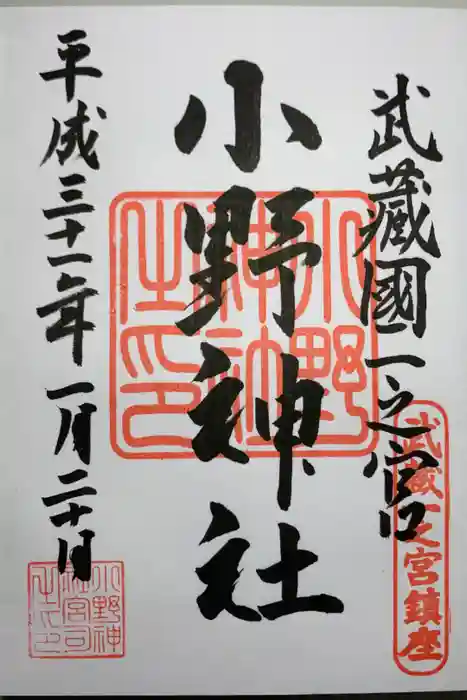 武藏國一之宮
武藏一之宮鎮座
小野神社
小野神社之印
平成三十一年一月二十日
小野神社宮司之印